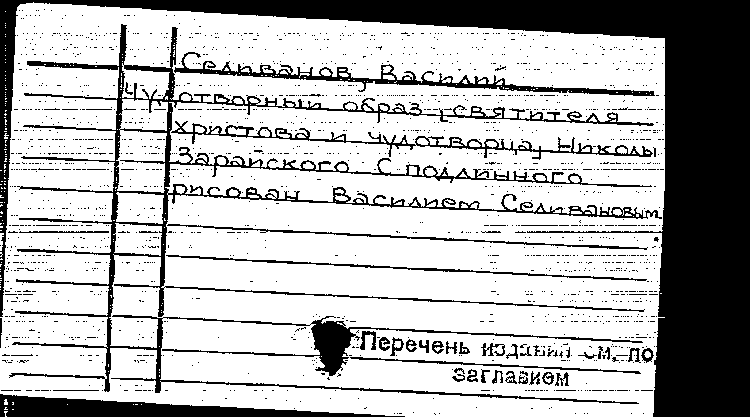 Селиванов, Василий.
Чудотворный образ святителя
христова и чудотворца, Николы
Зарайского С подлинного
рисован Василием Селивановым
.
Перечень изданий см. по
заглавием